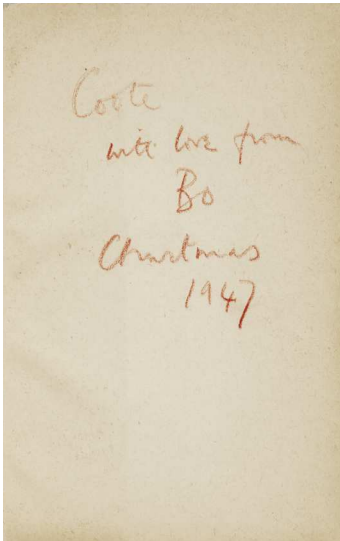 Coote
with love from
Bo
Christmas
1947